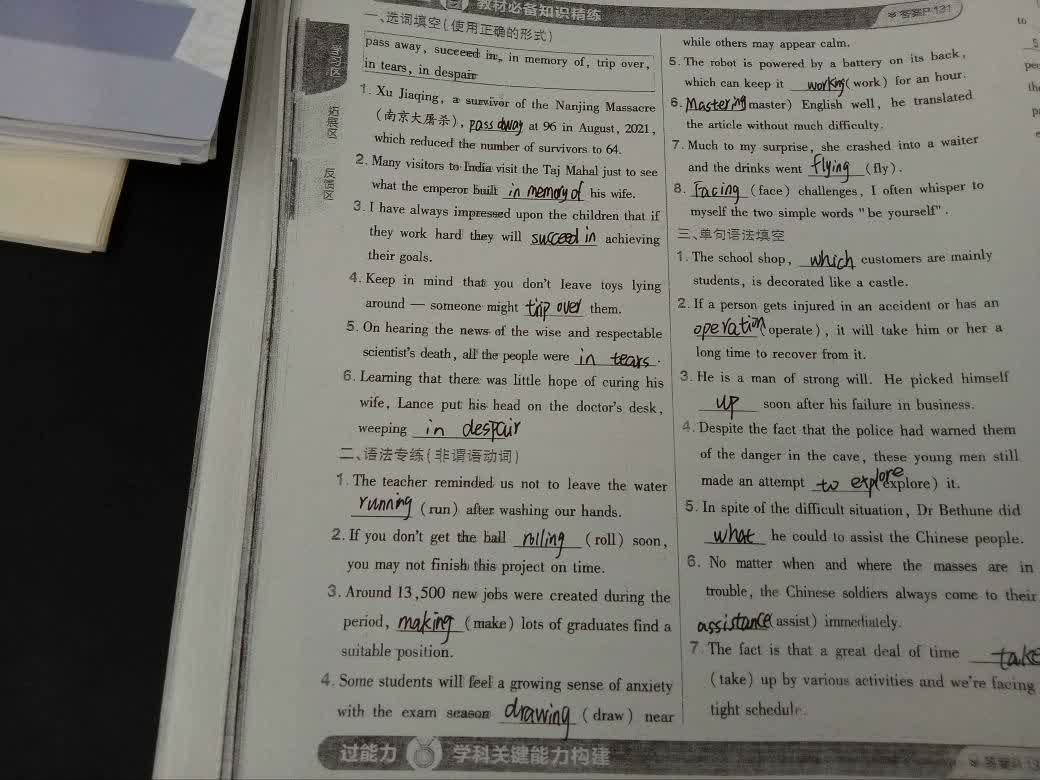 教材必备知识精练
答案P 131
一、选词填空(使用正确的形式)
pass away, succeed in, in memory of, trip over,
in tears, in despair
1. Xu Jiaqing, a survivor of the Nanjing Massacre
(南京大屠杀), pass away at 96 in August, 2021,
which reduced the number of survivors to 64.
2. Many visitors to India visit the Taj Mahal just to see
what the emperor built in memory of his wife.
3. I have always impressed upon the children that if
they work hard they will succeed in achieving
their goals.
4. Keep in mind that you don't leave toys lying
around — someone might trip over them.
5. On hearing the news of the wise and respectable
scientist's death, all the people were in tears.
6. Learning that there was little hope of curing his
wife, Lance put his head on the doctor's desk,
weeping in despair
二、语法专练(非谓语动词)
1. The teacher reminded us not to leave the water
running (run) after washing our hands.
2. If you don't get the ball rolling (roll) soon,
you may not finish this project on time.
3. Around 13,500 new jobs were created during the
period, making (make) lots of graduates find a
suitable position.
4. Some students will feel a growing sense of anxiety
with the exam season drawing (draw) near
while others may appear calm.
5. The robot is powered by a battery on its back,
which can keep it working (work) for an hour.
6. Mastering (master) English well, he translated
the article without much difficulty.
7. Much to my surprise, she crashed into a waiter
and the drinks went flying (fly).
8. Facing (face) challenges, I often whisper to
myself the two simple words "be yourself".
三、单句语法填空
1. The school shop, which customers are mainly
students, is decorated like a castle.
2. If a person gets injured in an accident or has an
operation (operate), it will take him or her a
long time to recover from it.
3. He is a man of strong will. He picked himself
up soon after his failure in business.
4. Despite the fact that the police had warned them
of the danger in the cave, these young men still
made an attempt to explore (explore) it.
5. In spite of the difficult situation, Dr Bethune did
what he could to assist the Chinese people.
6. No matter when and where the masses are in
trouble, the Chinese soldiers always come to their
assistance (assist) immediately.
7. The fact is that a great deal of time take
(take) up by various activities and we're facing
tight schedule.
学习区
拓展区
反馈区
过能力 学科关键能力构建
to